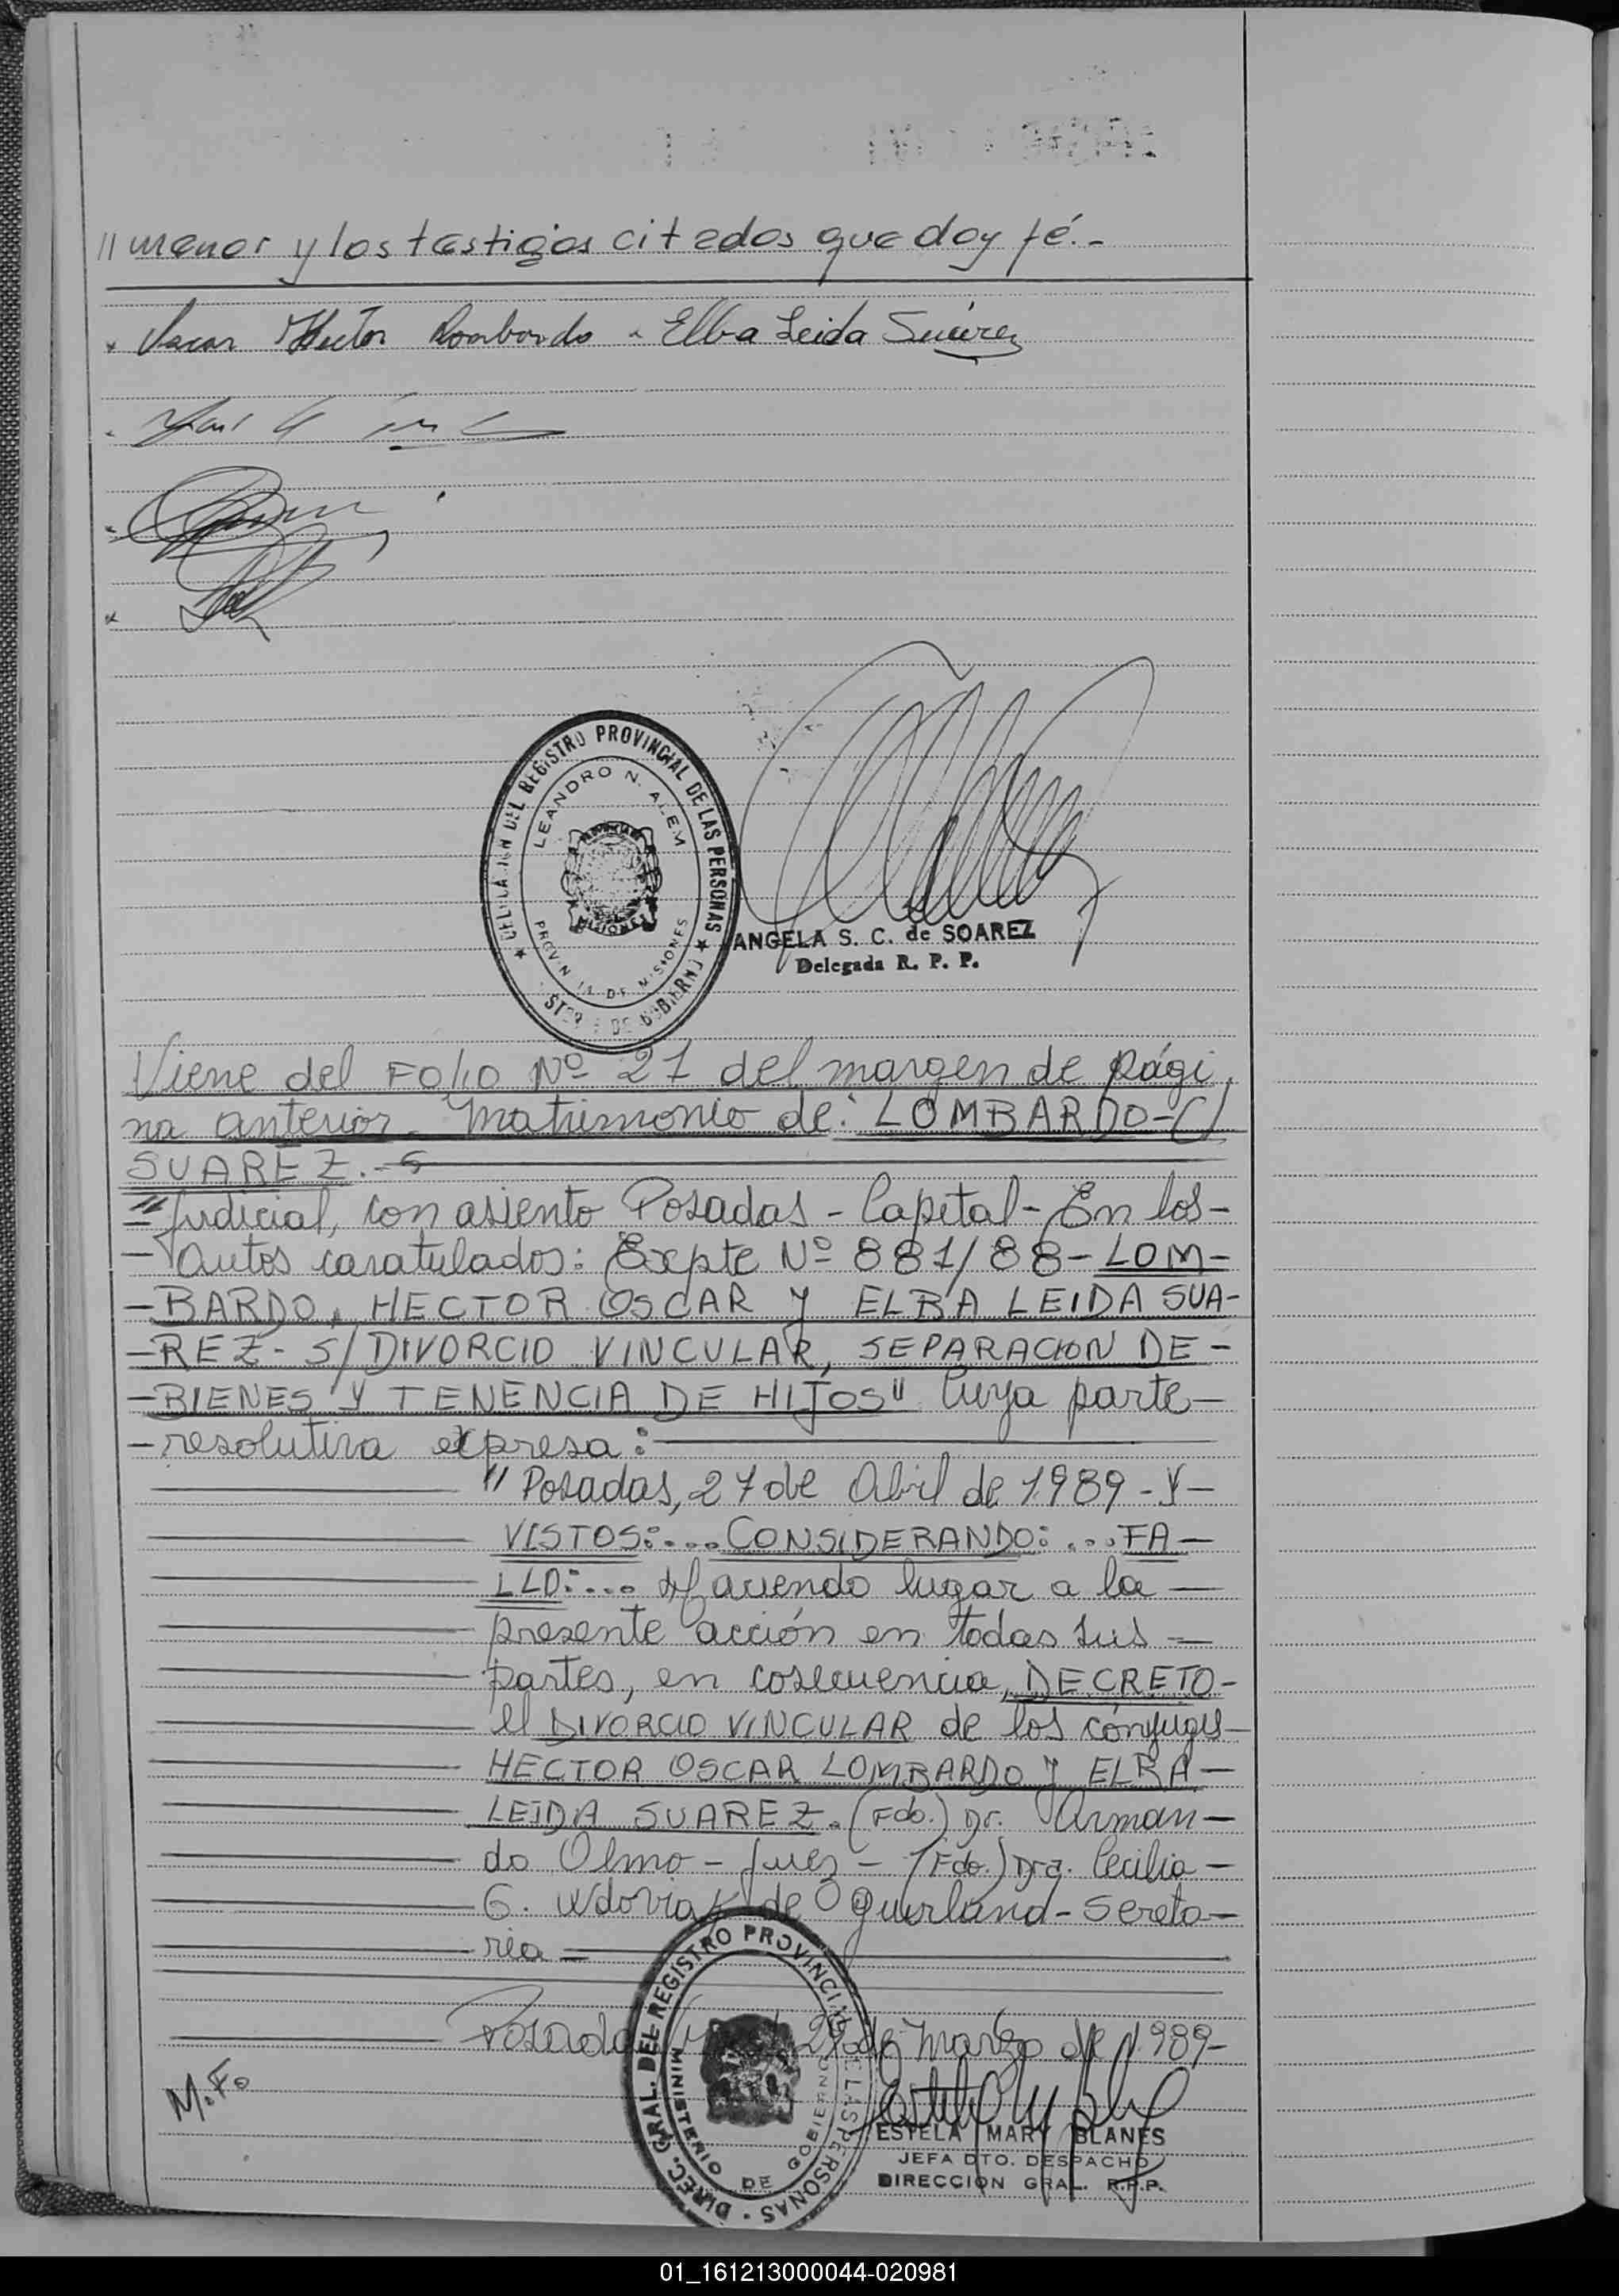 // menor y los testigos citados que doy fé.-
Oscar Hector Lombardo - Elba Leida Suárez
DEL REGISTRO PROVINCIAL DE LAS PERSONAS
LEANDRO N. ALEM
MISIONES
ANGELA S. C. de SOAREZ
Delegada R. P. P.
Viene del FOLIO Nº 21 del margen de pági
na anterior. Matrimonio de: LOMBARDO-C/
SUAREZ.-
"Judicial, con asiento Posadas - Capital - En los-
- autos caratulados: Expte Nº 881/88- LOM-
-BARDO, HECTOR OSCAR Y ELBA LEIDA SUA-
-REZ- S/DIVORCIO VINCULAR, SEPARACION DE-
-BIENES Y TENENCIA DE HIJOS" Cuya parte-
-resolutiva expresa:
" Posadas, 27 de Abril de 1989 - Y-
VISTOS:.... CONSIDERANDO: ....FA-
LLO:.... Haciendo lugar a la
presente acción en todas sus
partes, en cosecuencia, DECRETO-
el DIVORCIO VINCULAR de los cónyuges-
HECTOR OSCAR LOMBARDO Y ELBA-
LEIDA SUAREZ. (Fdo.) Dr. Arman-
do Olmo - Juez - (Fdo.) Dra. Cecilia-
G. Wdoviak de Oguerland - Sereta-
ria
Posadas 29 de Marzo de 1989-
M.F.
DIREC. GRAL. DEL REGISTRO PROVINCIAL DE LAS PERSONAS
MINISTERIO DE GOBIERNO
ESTELA MARY BLANES
JEFA DTO. DESPACHO
DIRECCION GRAL. R.P.P.
01_161213000044-020981